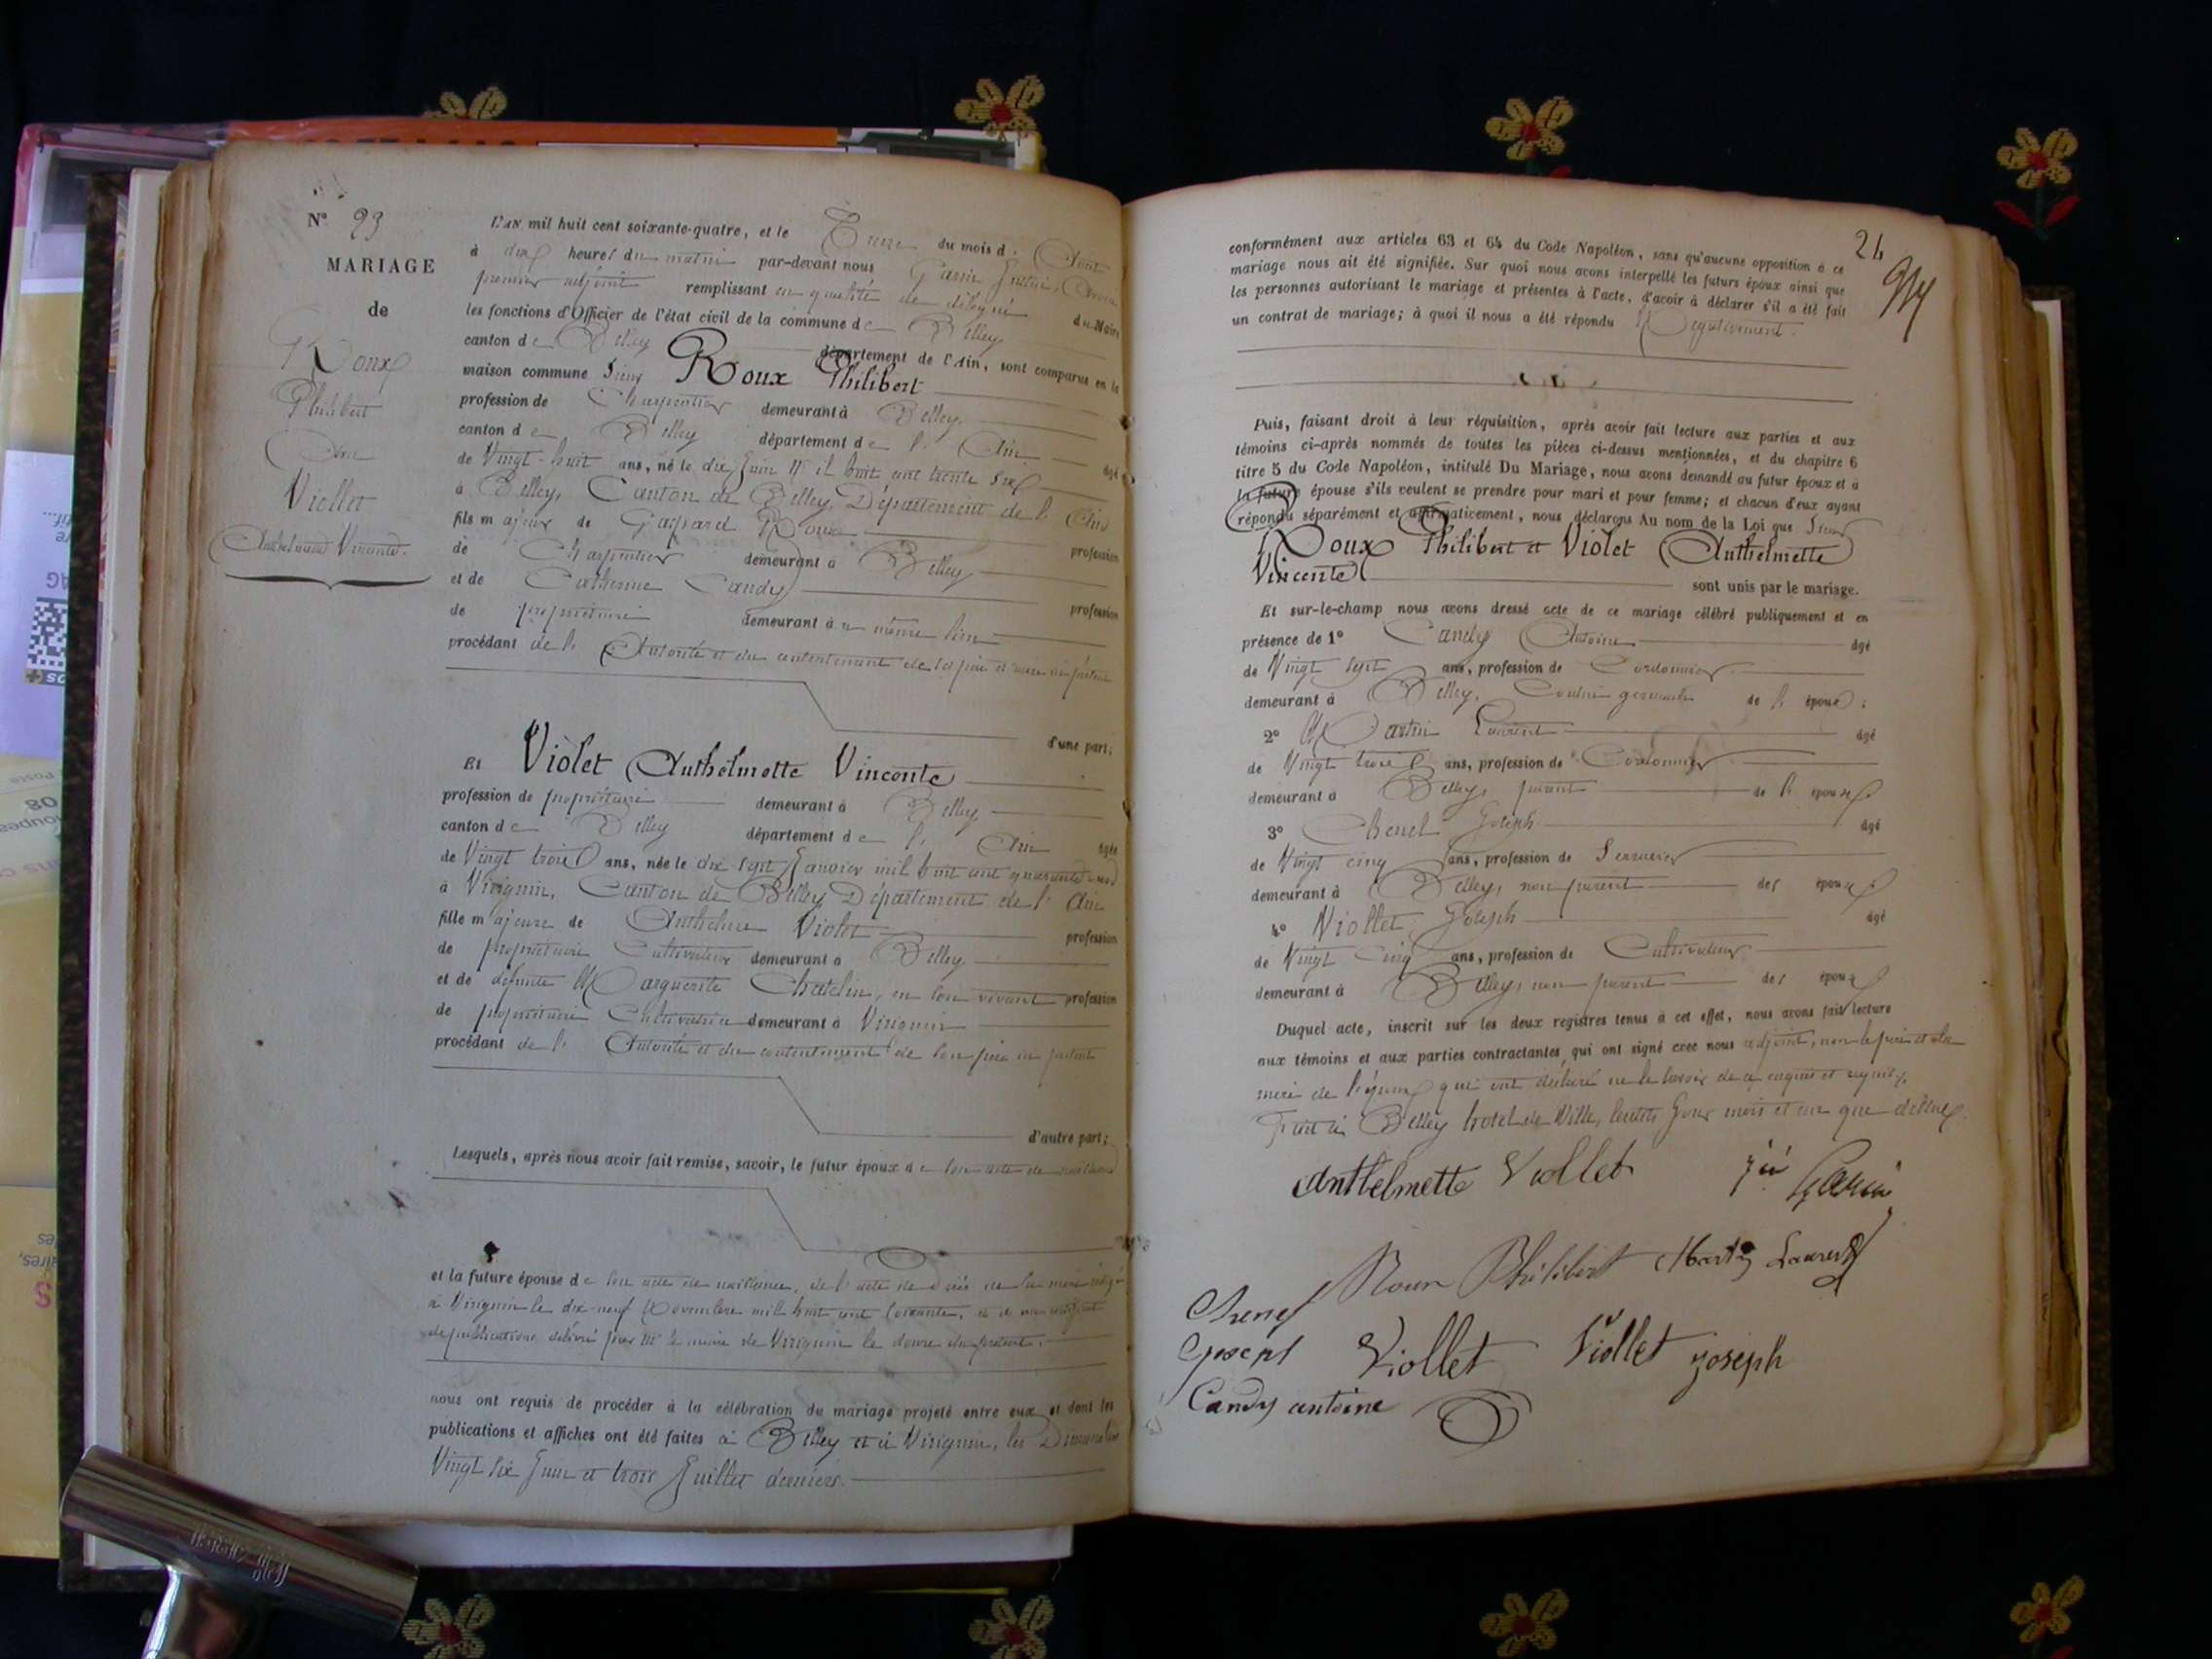 N° 23
MARIAGE
de
Roux
Philibert
Avec
Viollet
Anthelmette Vincente.
L'AN mil huit cent soixante-quatre, et le Treize du mois d'Août
à dix heures du matin par-devant nous Garin
premier adjoint remplissant en qualité de délégué du Maire
les fonctions d'Officier de l'état civil de la commune de Belley
canton de Belley département de l'Ain, sont comparus en la
maison commune Sieur Roux Philibert
profession de Charpentier demeurant à Belley,
canton de Belley département de l'Ain âgé
de Vingt-huit ans, né le dix Juin Mil huit cent trente six
à Belley, Canton de Belley, Département de l'Ain
fils majeur de Gaspard Roux profession
de Charpentier demeurant à Belley
et de Catherine Candy profession
de propriétaire demeurant au même lieu
procédant de l'Autorité et du consentement de ses père et mère ici présents
d'une part;
Et Violet Anthelmette Vincente
profession de propriétaire demeurant à Belley
canton de Belley département de l'Ain âgée
de Vingt trois ans, née le dix sept Janvier mil huit cent quarante un
à Virignin, Canton de Belley, Département de l'Ain
fille majeure de Anthelme Violet profession
de propriétaire Cultivateur demeurant à Belley
et de défunte Marguerite Chatelin, en son vivant profession
de propriétaire Cultivatrice demeurant à Virignin
procédant de l'Autorité et du consentement de son père ici présent
d'autre part;
Lesquels, après nous avoir fait remise, savoir, le futur époux de son acte de naissance
et la future épouse de son acte de naissance, de l'acte de décès de sa mère rédigé
à Virignin le dix-neuf Novembre mil huit cent soixante, et d'un certificat
de publications délivré par Mr le maire de Virignin le douze du présent.
nous ont requis de procéder à la célébration du mariage projeté entre eux et dont les
publications et affiches ont été faites à Belley et à Virignin, les Dimanches
Vingt six Juin et trois Juillet derniers.
24
conformément aux articles 63 et 64 du Code Napoléon, sans qu'aucune opposition à ce
mariage nous ait été signifiée. Sur quoi nous avons interpellé les futurs époux ainsi que
les personnes autorisant le mariage et présentes à l'acte, d'avoir à déclarer s'il a été fait
un contrat de mariage; à quoi il nous a été répondu Négativement.
Puis, faisant droit à leur réquisition, après avoir fait lecture aux parties et aux
témoins ci-après nommés de toutes les pièces ci-dessus mentionnées, et du chapitre 6
titre 5 du Code Napoléon, intitulé Du Mariage, nous avons demandé au futur époux et à
la future épouse s'ils veulent se prendre pour mari et pour femme; et chacun d'eux ayant
répondu séparément et affirmativement, nous déclarons Au nom de la Loi que Sieur
Roux Philibert et Violet Anthelmette
Vincente sont unis par le mariage.
Et sur-le-champ nous avons dressé acte de ce mariage célébré publiquement et en
présence de 1° Candy Antoine âgé
de Vingt sept ans, profession de Cordonnier
demeurant à Belley, Cousin germain de l'époux;
2° Martin Laurent âgé
de Vingt trois ans, profession de Cordonnier
demeurant à Belley, parent de l'époux
3° Chenel Joseph âgé
de Vingt cinq ans, profession de Serrurier
demeurant à Belley, non parent des époux
4° Viollet Joseph âgé
de Vingt Cinq ans, profession de Cultivateur
demeurant à Belley, non parent des époux
Duquel acte, inscrit sur les deux registres tenus à cet effet, nous avons fait lecture
aux témoins et aux parties contractantes qui ont signé avec nous adjoint, non le père et la
mère de l'époux qui ont déclaré ne le savoir de ce enquis et requis,
Fait à Belley hotel de Ville, lesdits Jour mois et an que dessus.
Anthelmette Viollet
Garin
Roux Philibert Martin Laurent
Chenel
Joseph Viollet Viollet joseph
Candy antoine